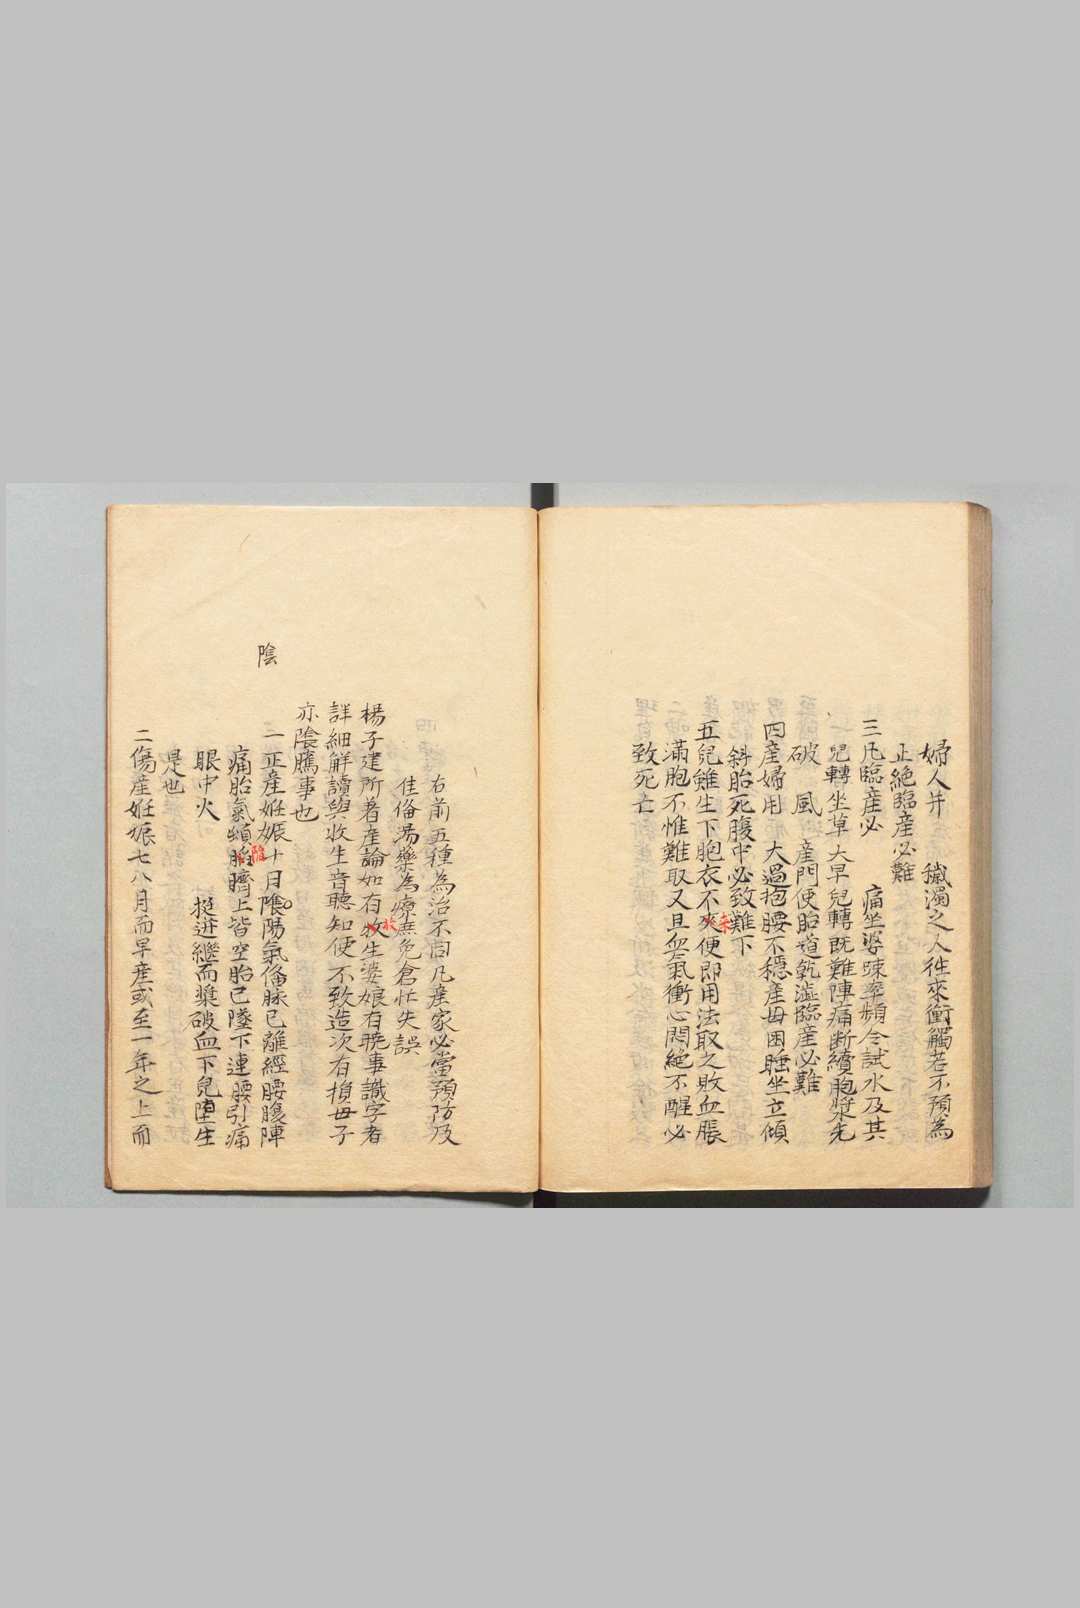 婦人并　穢濁之人往來衝觸若不預為
止絶臨産必難
三凡臨産必　　痛坐婆踈率頻令試水及其
兒轉坐草大早兒轉既難陣痛断續胞漿先
破　風　産門使胎道乾澁臨産必難
四産婦用　大過抱腰不穩産母困睡坐立傾
斜胎死腹中必致難下
五兒雖生下胞衣不来便即用法取之敗血脹
滿胞不惟難取又且血氣衝心悶絶不醒必
致死亡
右前五種為治不同凡産家必當預防及
佳俻湯藥為療庶免倉忙失誤
楊子建所著産論如有收生婆娘有曉事識字者
詳細解讀與收生音聽知便不致造次有損母子
亦陰騭事也
陰
一正産妊娠十月陰陽氣俻脉已離經腰腹陣
痛胎氣頓陷臍上皆空胎已墜下連腰引痛
眼中火　　挺迸繼而漿破血下兒堕生
是也
二傷産妊娠七八月而早産或至一年之上而